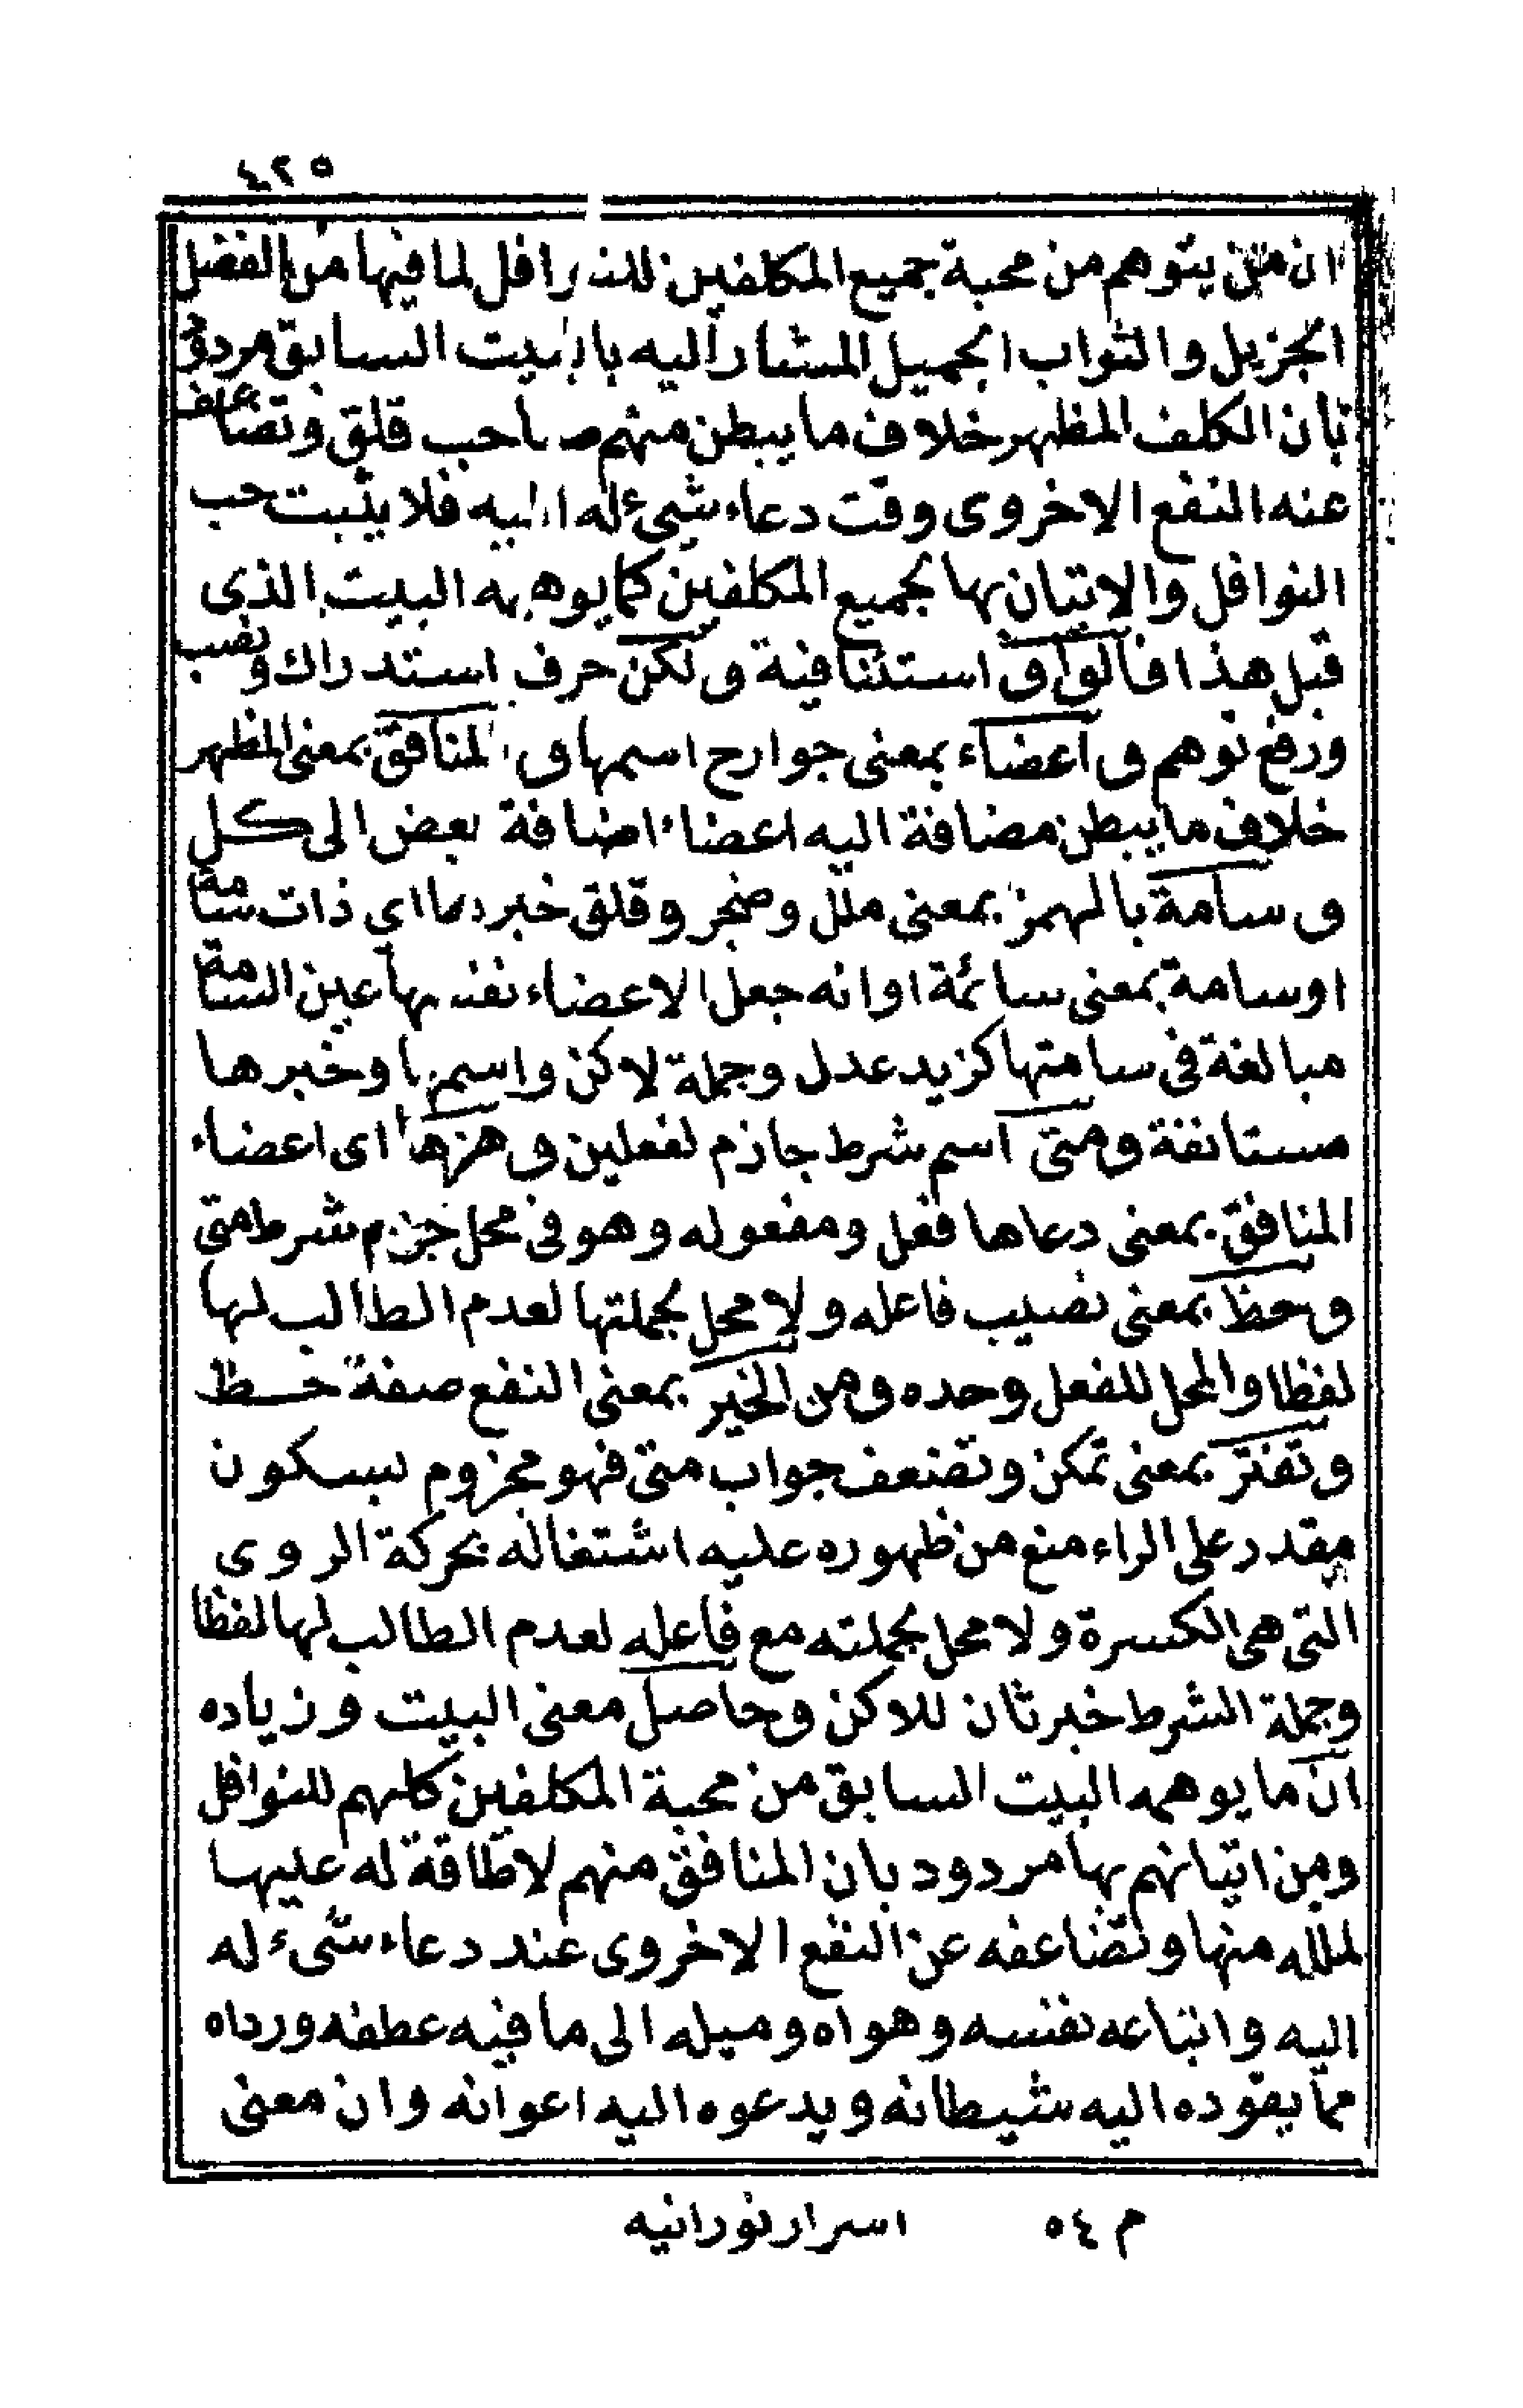 ٤٢٥
ان من يتوهم من محبة جميع المكلفين للنوافل لما فيها من الفضل
الجزيل والثواب الجميل المشار اليه بالبيت السابق مردود
بان الكلف المظهر خلاف ما يبطن منهم صاحب قلق وتضاعف
عنه النفع الاخروى وقت دعاء شيء له اليه فلا يثبت حب
النوافل والاتيان بها لجميع المكلفين كما يوهمه البيت الذى
قبل هذا فالواو استئنافية و لكن حرف استدراك ونصب
ورفع توهم و اعضاء بمعنى جوارح اسمها و المنافق بمعنى المظهر
خلاف ما يبطن مضافة اليه اعضاء اضافة بعض الى كل
و سامة بالهمز بمعنى ملل وضجر وقلق خبرها اى ذات سامة
او سامة بمعنى سائمة او انه جعل الاعضاء نفسها عين السامة
مبالغة فى سامتها كزيد عدل وجملة لاكن واسمها وخبرها
مستانفة و متى اسم شرط جازم لفعلين و هزها اى اعضاء
المنافق بمعنى دعاها فعل ومفعوله وهو فى محل جزم شرط متى
و حظ بمعنى نصيب فاعله ولا محل لجملتها لعدم الطالب لها
لفظا والمحل للفعل وحده و من الخير بمعنى النفع صفة حظ
و تفتر بمعنى تمكن وتضعف جواب متى فهو مجزوم بسكون
مقدر على الراء منع من ظهوره عليه اشتغاله بحركة الروى
التى هى الكسرة ولا محل لجملته مع فاعله لعدم الطالب لها لفظا
وجملة الشرط خبر ثان للاكن وحاصل معنى البيت وزياده
ان ما يوهمه البيت السابق من محبة المكلفين كلهم للنوافل
ومن اتيانهم بها مردود بان المنافق منهم لا طاقة له عليها
لملله منها وتضاعفه عن النفع الاخروى عند دعاء شيء له
اليه واتباعه نفسه وهواه وميله الى ما فيه عطفه ورداه
مما يقوده اليه شيطانه ويدعوه اليه اعوانه وان معنى
م ٥٤ اسرار نورانيه